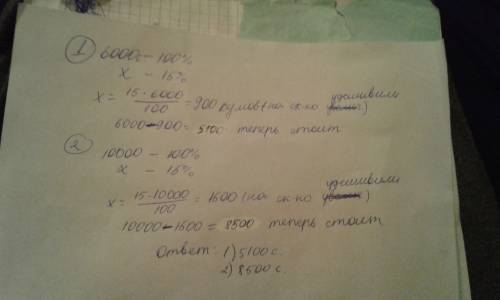 1 6000 – 100%
x – 15%
x = 15·6000/100 = 900 сумов (на ск-ко удешевили)
6000 – 900 = 5100 теперь стоит
2 10000 – 100%
x – 15%
x = 15·10000/100 = 1500 (на ск-ко удешевили)
10000 – 1500 = 8500 теперь стоит
Ответ: 1) 5100 с.
2) 8500 с.